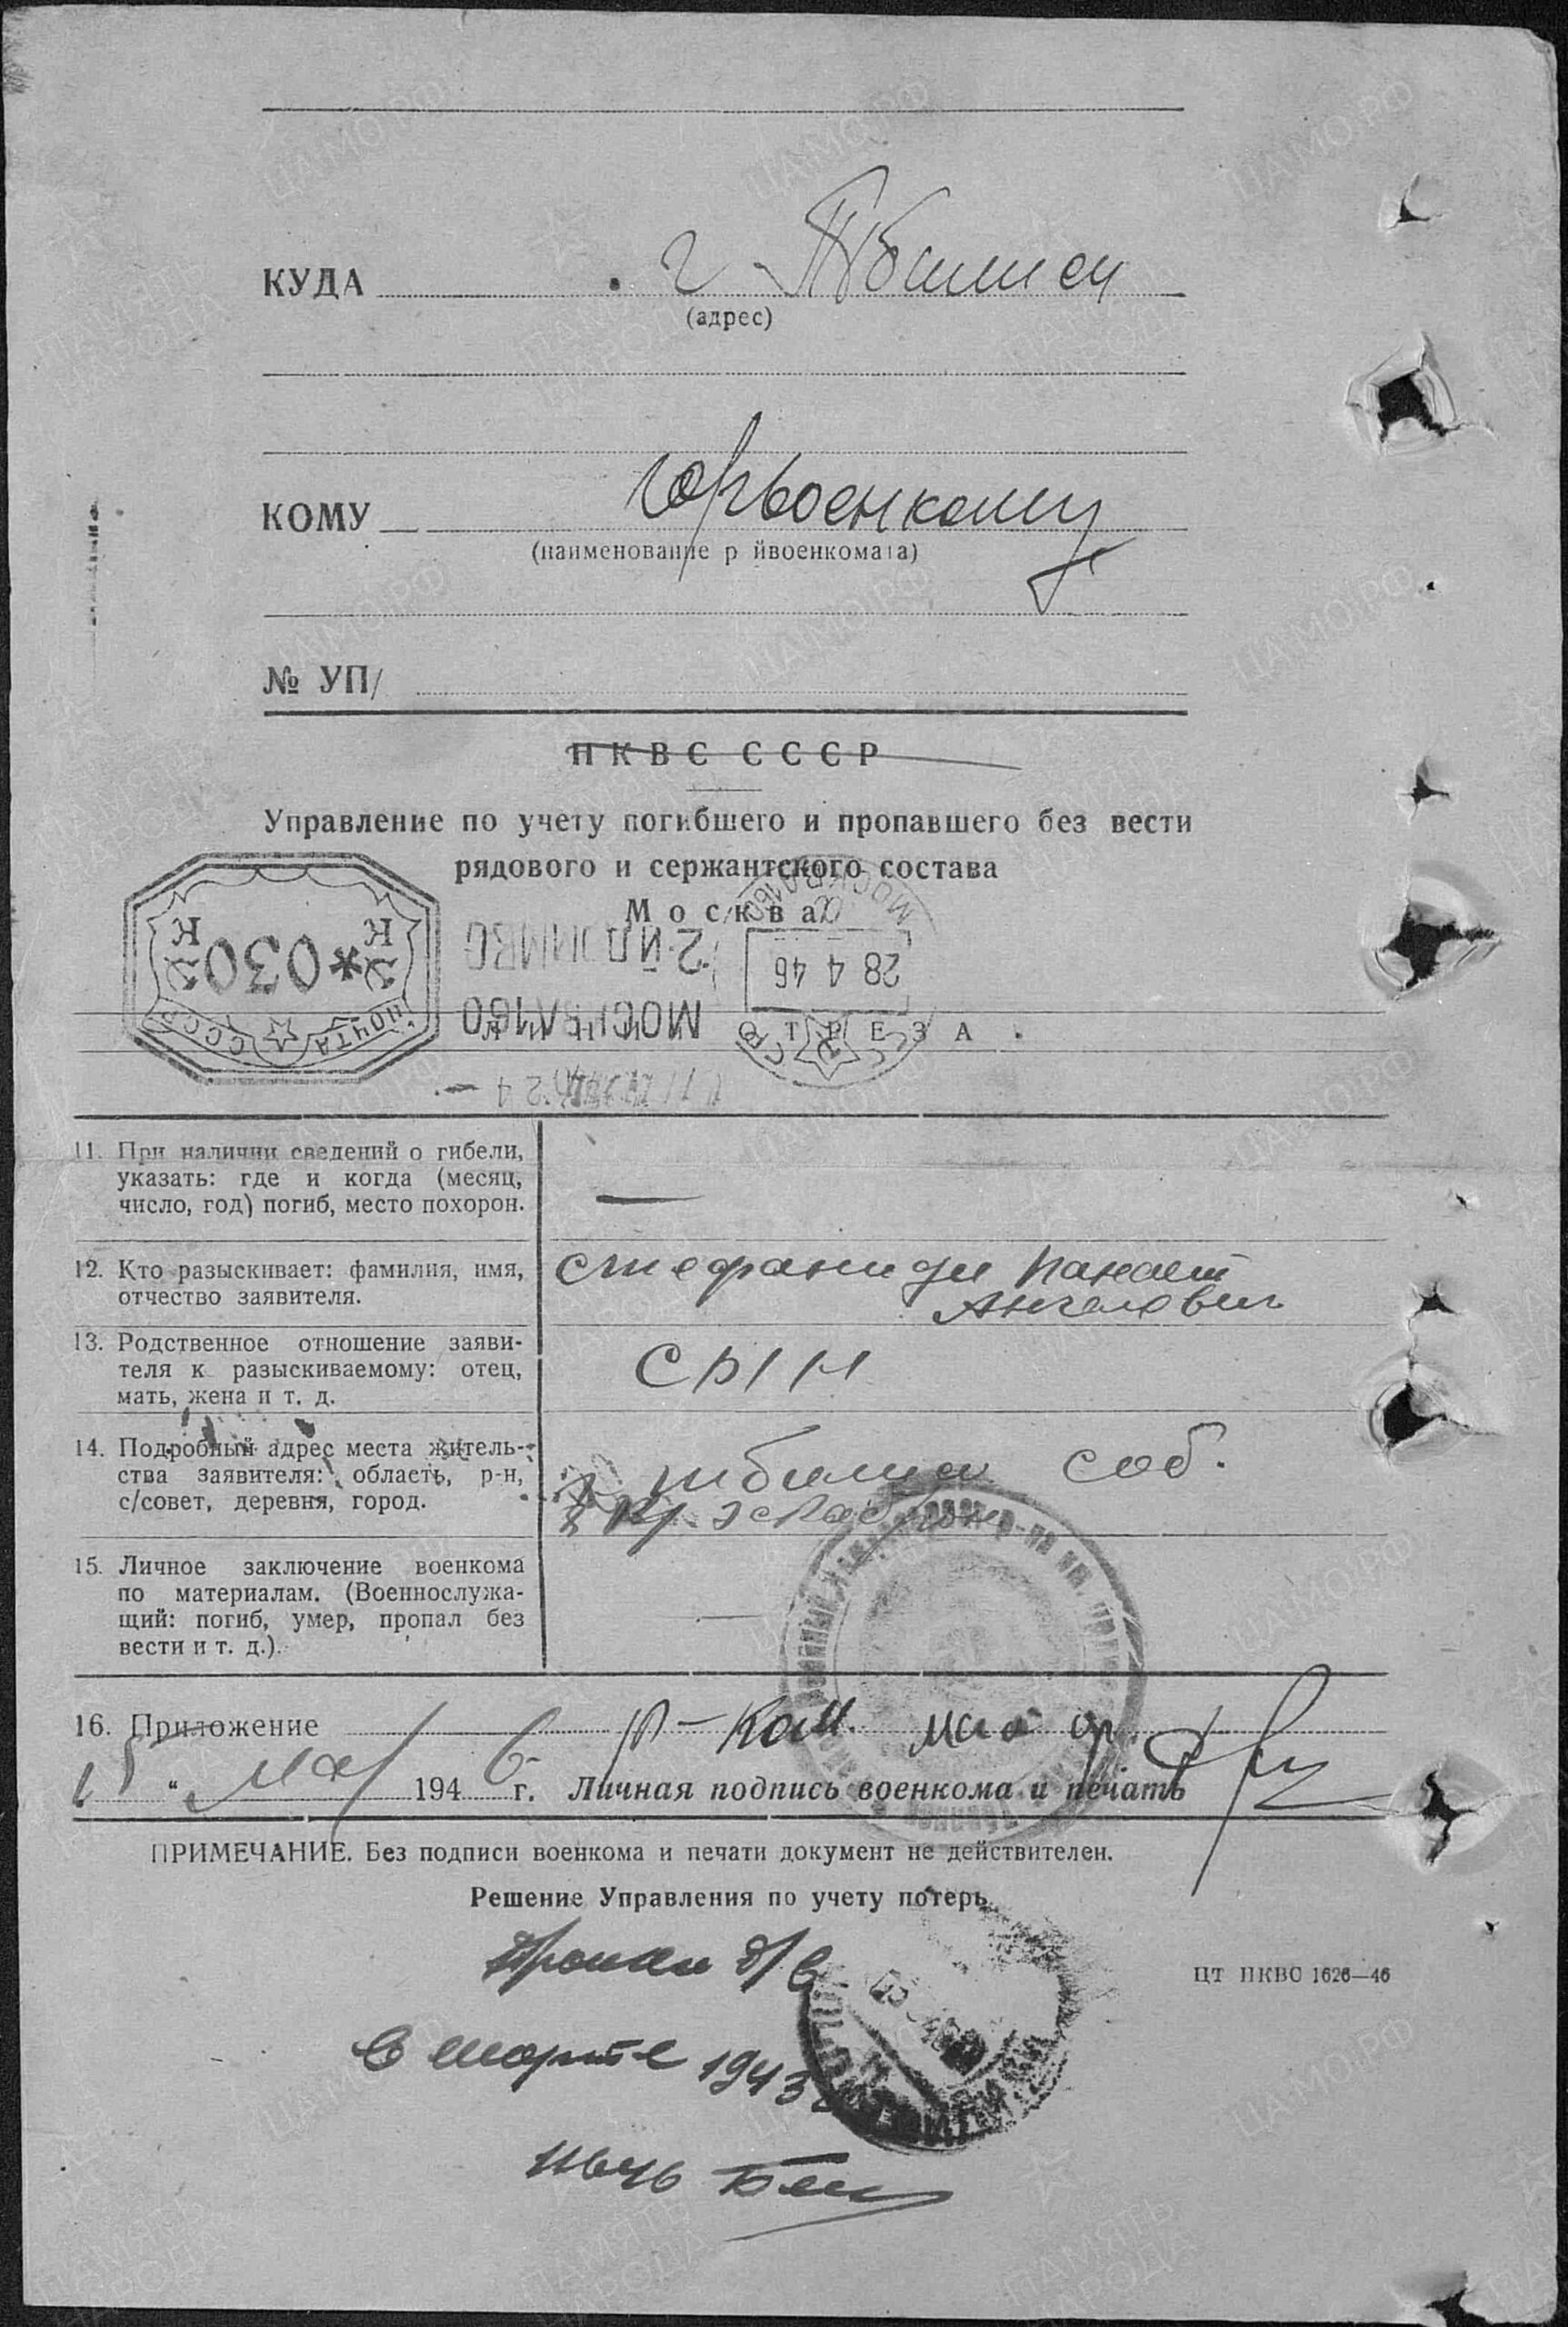 КУДА г Тбилиси
(адрес)
КОМУ Горвоенкому
(наименование р йвоенкомата)
№ УП/
НКВС СССР
Управление по учету погибшего и пропавшего без вести
рядового и сержантского состава
Москва
МОСКВА 160
28 4 46
2-Й ДОМ МВС
МОСКВА 160
*030
К К
ПОЧТА СССР
ОТРЕЗА
11. При наличии сведений о гибели,
указать: где и когда (месяц,
число, год) погиб, место похорон.
—
12. Кто разыскивает: фамилия, имя,
отчество заявителя.
Стефаниди Панает
Ангелович
13. Родственное отношение заяви-
теля к разыскиваемому: отец,
мать, жена и т. д.
СЫН
14. Подробный адрес места житель-
ства заявителя: область, р-н,
с/совет, деревня, город.
г Тбилиси соб.
15. Личное заключение военкома
по материалам. (Военнослужа-
щий: погиб, умер, пропал без
вести и т. д.).
—
16. Приложение
15 " мая 1946 г. Личная подпись военкома и печать
ПРИМЕЧАНИЕ. Без подписи военкома и печати документ не действителен.
Решение Управления по учету потерь
Пропал б/в
в марте 1943
ЦТ НКВС 1626—46